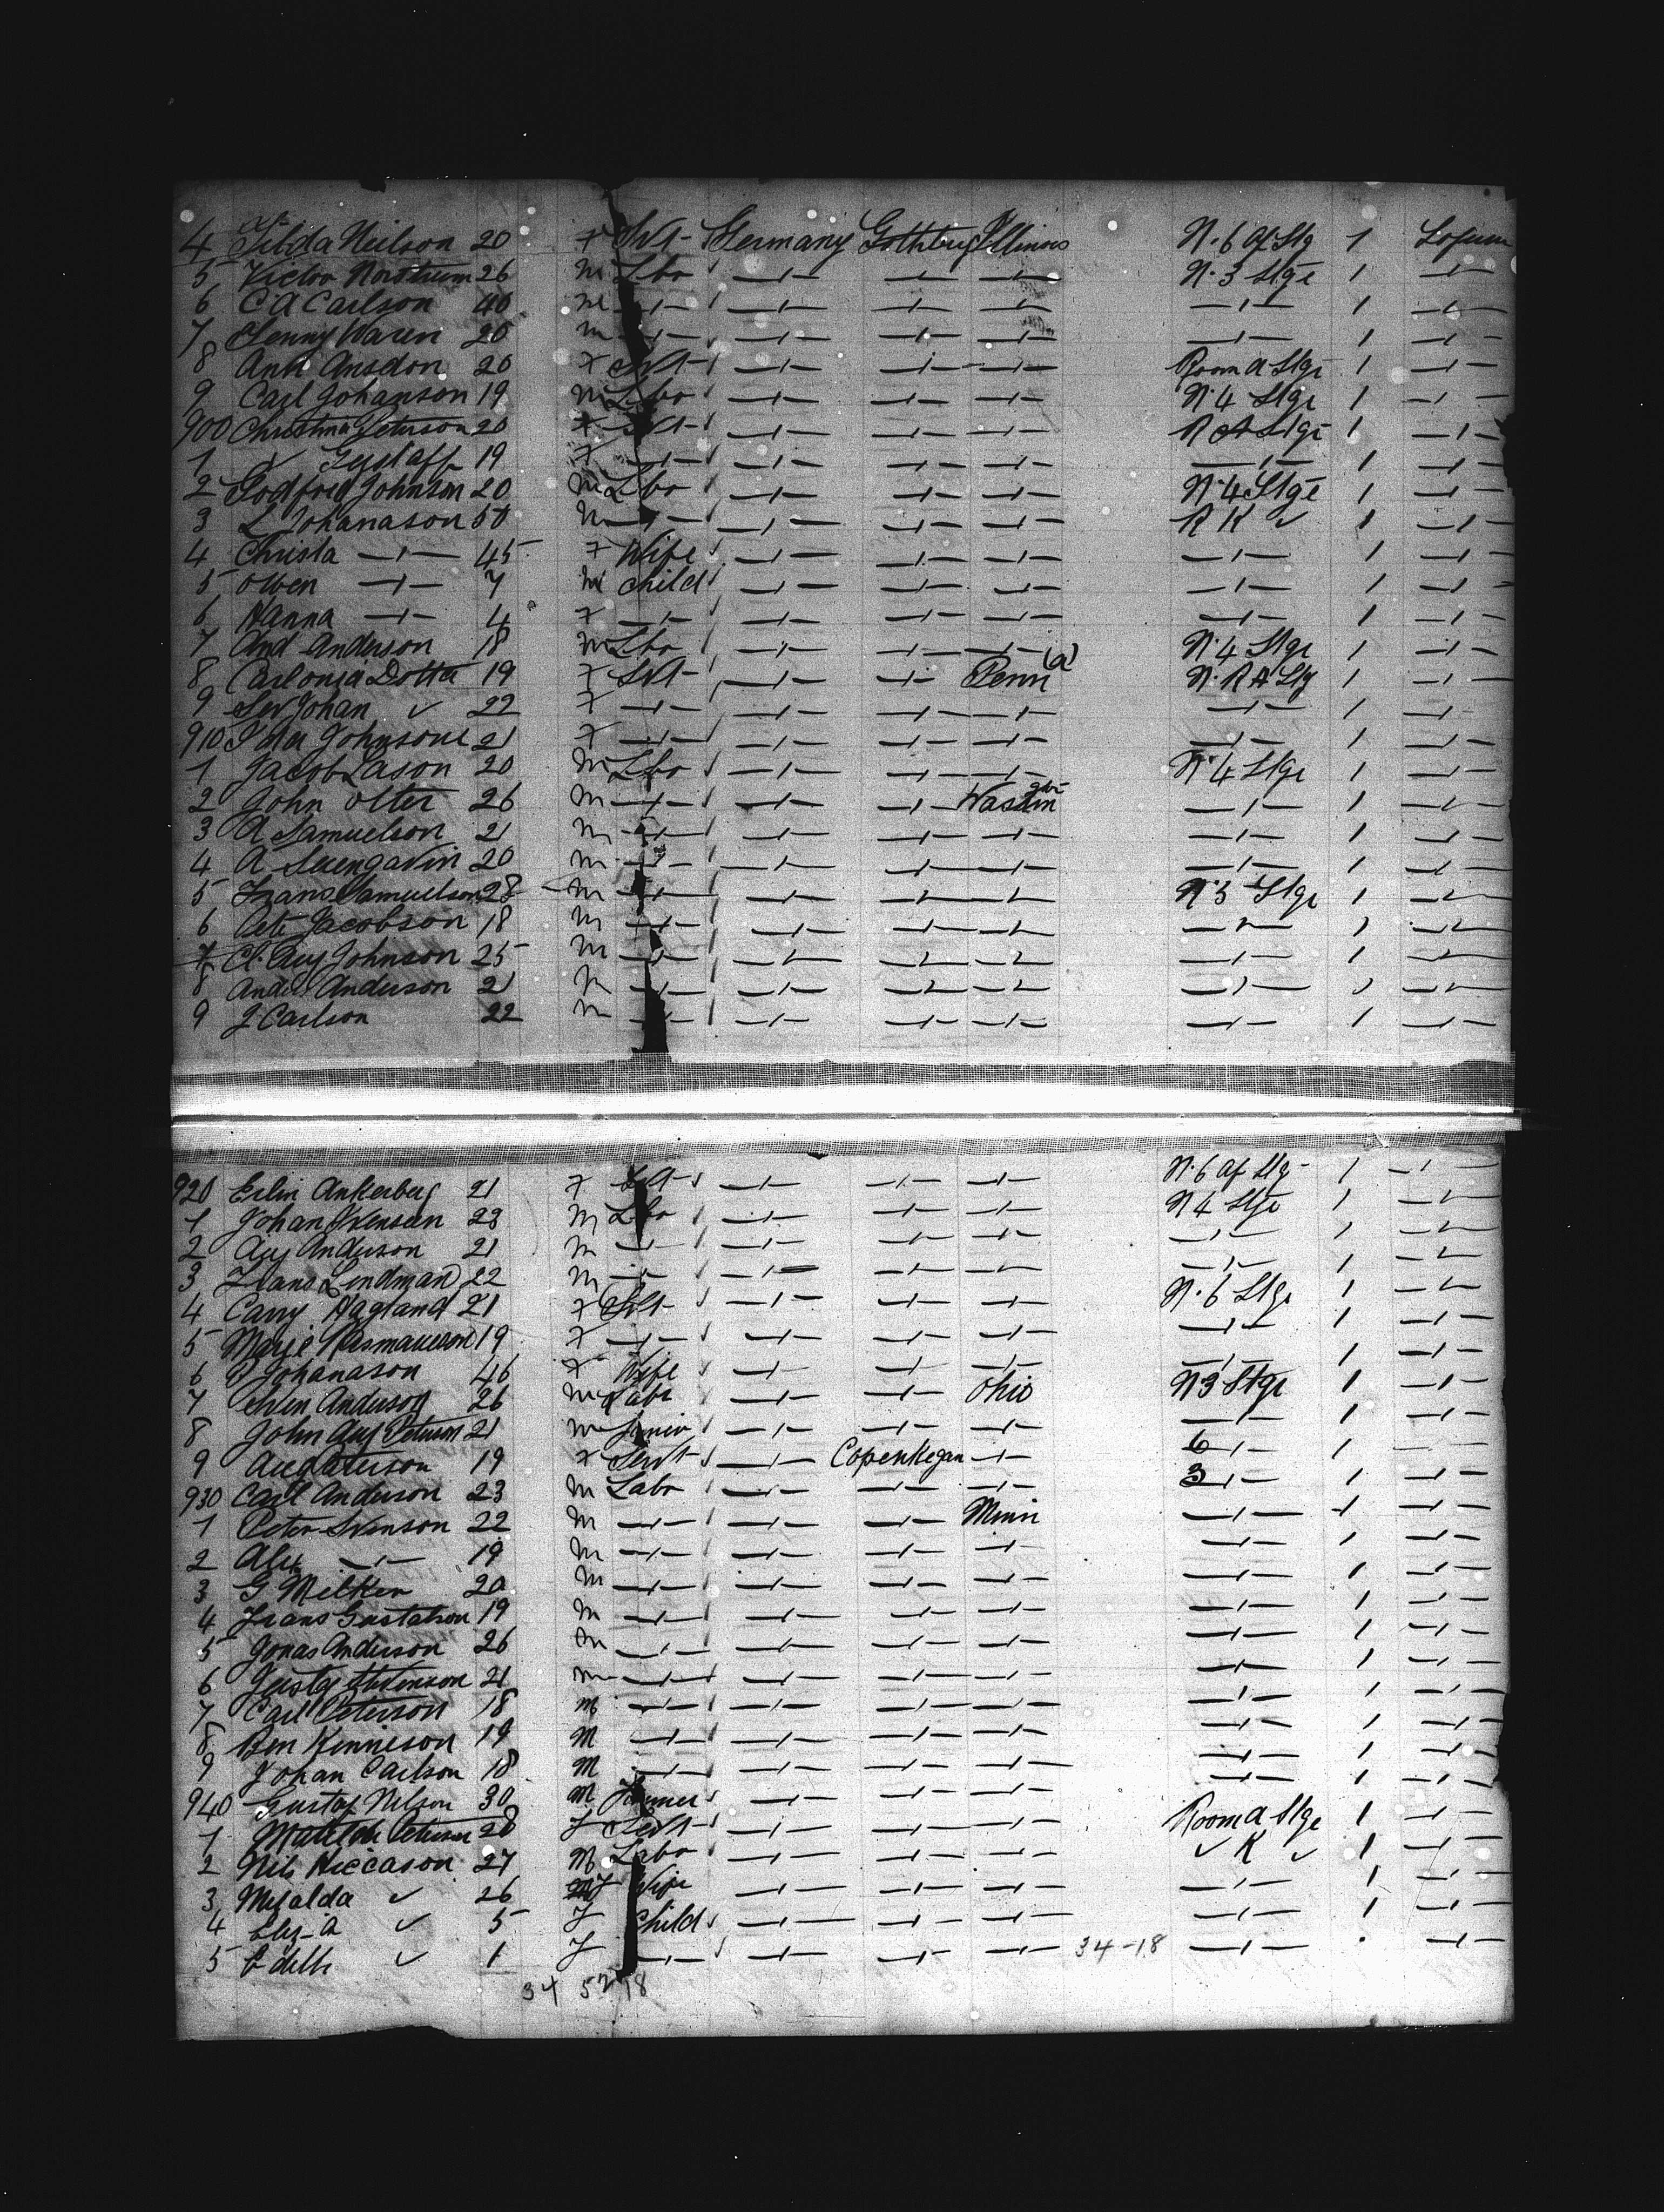 4 Tilda Neilson 20 F Svt Germany Gothbug Illinois N. 6 Af Stg 1
5 Victor Nordstrum 26 M Lbr —"— —"— —"— N. 3 Stge 1 —"—
6 C A Carlson 40 M —"— —"— —"— —"— —"— 1 —"—
7 Jenny Waren 20 M —"— —"— —"— —"— —"— 1 —"—
8 Ann Ansdon 20 F Svt —"— —"— —"— Room A Stge 1 —"—
9 Carl Johanson 19 M Lbr —"— —"— —"— N. 4 Stge 1 —"—
900 Christina Peterson 20 F Svt —"— —"— —"— R A Stge 1 —"—
1 ✓ Gustaff 19 F —"— —"— —"— —"— —"— 1 —"—
2 Godfred Johnson 20 M Lbr —"— —"— —"— N. 4 Stge 1 —"—
3 L Johanason 50 M —"— —"— —"— —"— R K ✓ 1 —"—
4 Christa —"— 45 F Wife —"— —"— —"— —"— 1 —"—
5 Owen —"— 7 M Child —"— —"— —"— —"— 1 —"—
6 Hanna —"— 4 F —"— —"— —"— —"— —"— 1 —"—
7 And Anderson 18 M Lbr —"— —"— —"— N. 4 Stge 1 —"—
8 Carlonia Dotta 19 F Svt —"— —"— Penn (a) N. R A Stg 1 —"—
9 Johan ✓ 22 F —"— —"— —"— —"— —"— 1 —"—
910 Ida Johnsone 21 F —"— —"— —"— —"— —"— 1 —"—
1 Jacob Lason 20 M Lbr —"— —"— —"— N. 4 Stge 1 —"—
2 John Olter 26 M —"— —"— —"— Washin gtn —"— 1 —"—
3 A Samuelson 21 M —"— —"— —"— —"— —"— 1 —"—
4 A 20 M —"— —"— —"— —"— —"— 1 —"—
5 Frans Samuelson 28 M —"— —"— —"— —"— N. 3 Stge 1 —"—
6 Pete Jacobson 18 M —"— —"— —"— —"— —"— 1 —"—
7 Cl. Aug Johnson 25 M —"— —"— —"— —"— —"— 1 —"—
8 Ander Anderson 21 M —"— —"— —"— —"— —"— 1 —"—
9 J Carlson 22 M —"— —"— —"— —"— —"— 1 —"—
920 Erlin Ankerberg 21 F Svt —"— —"— —"— N. 6 Af Stg 1 —"—
1 Johan Svensen 23 M Lbr —"— —"— —"— N 4 Stge 1 —"—
2 Aug Anderson 21 M —"— —"— —"— —"— —"— 1 —"—
3 Frans Lindman 22 M —"— —"— —"— —"— —"— 1 —"—
4 Carry Hagland 21 F Svt —"— —"— —"— N. 6 Stge 1 —"—
5 Marie 19 F —"— —"— —"— —"— —"— 1 —"—
6 Johanason 46 F Wife —"— —"— —"— —"— 1 —"—
7 Sven Anderson 26 M Labr —"— —"— Ohio N 3 Stge 1 —"—
8 John Aug Peterson 21 M —"— —"— —"— —"— 1 —"—
9 Aug Peterson 19 F Servt —"— Copenhegan —"— 6 —"— 1 —"—
930 Carl Anderson 23 M Labr —"— —"— —"— 3 —"— 1 —"—
1 Peter Svenson 22 M —"— —"— —"— Minn —"— 1 —"—
2 Alex —"— 19 M —"— —"— —"— —"— —"— 1 —"—
3 G Milken 20 M —"— —"— —"— —"— —"— 1 —"—
4 Frans Gustafson 19 M —"— —"— —"— —"— —"— 1 —"—
5 Jonas Anderson 26 M —"— —"— —"— —"— —"— 1 —"—
6 Gustaf Stevenson 21 M —"— —"— —"— —"— —"— 1 —"—
7 Carl Peterson 18 M —"— —"— —"— —"— —"— 1 —"—
8 Ben Kennieson 19 M —"— —"— —"— —"— —"— 1 —"—
9 Johan Carlson 18 M —"— —"— —"— —"— —"— 1 —"—
940 Gustaf Nelson 30 M Farmer —"— —"— —"— —"— 1 —"—
1 Matilda Peterson 28 F Servt —"— —"— —"— Room A Stge 1 —"—
2 Nils Hiccason 27 M Labr —"— —"— —"— ✓ K ✓ 1 —"—
3 Mefalda ✓ 26 F Wife —"— —"— —"— —"— 1 —"—
4 Eliz-a ✓ 5 F Child —"— —"— —"— —"— 1 —"—
5 Edith ✓ 1 F —"— —"— —"— —"— 34-18 —"— —"—
34 52 18